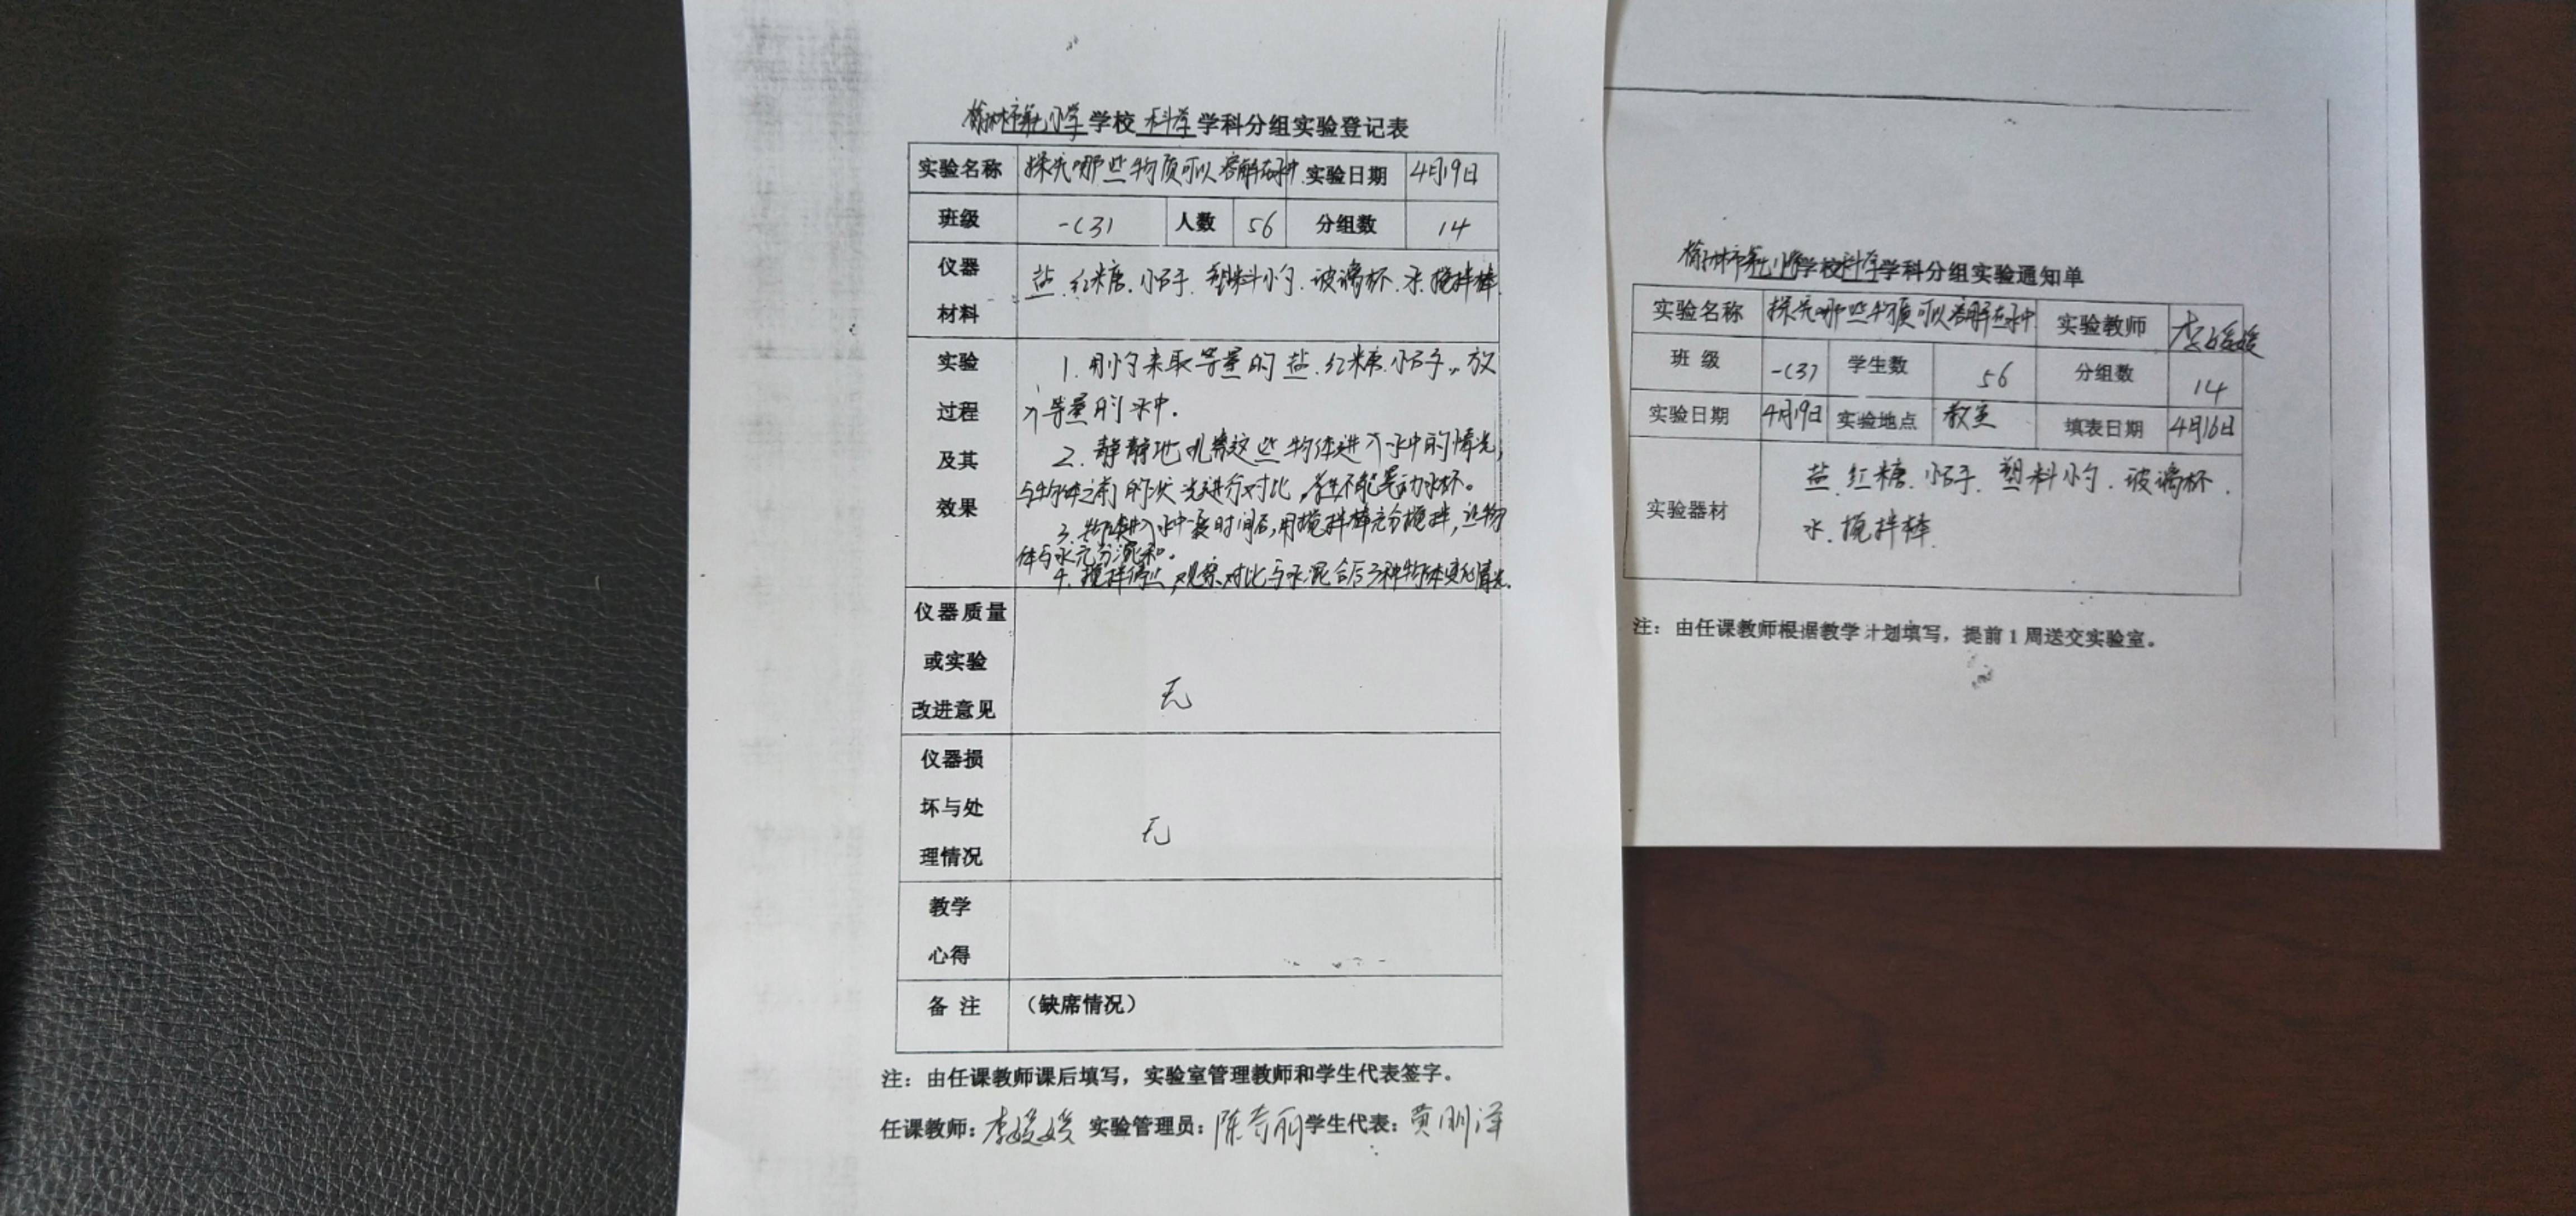 榆林市第七小学学校 科学 学科分组实验登记表
实验名称 探究哪些物质可以溶解在水中 实验日期 4月19日
班级 一(3) 人数 56 分组数 14
仪器材料 盐.红糖.小石子.塑料小勺.玻璃杯.水.搅拌棒
实验过程及其效果 1.用小勺来取等量的盐.红糖.小石子,放
入等量的水中.
2.静静地观察这些物体进入水中的情况,
与物体之前的状况进行对比,不能晃动水杯。
3.物体进入水中一段时间后,用搅拌棒充分搅拌,让物
体与水充分混和。
4.搅拌停止,观察对比与水混合后3种物体变化情况.
仪器质量或实验改进意见 无
仪器损坏与处理情况 无
教学心得
备 注 （缺席情况）
注：由任课教师课后填写，实验室管理教师和学生代表签字。
任课教师：李媛媛 实验管理员：陈奇丽 学生代表：黄明泽
榆林市第七小学学校科学学科分组实验通知单
实验名称 探究哪些物质可以溶解在水中 实验教师 李媛媛
班 级 一(3) 学生数 56 分组数 14
实验日期 4月19日 实验地点 教室 填表日期 4月16日
实验器材 盐.红糖.小石子.塑料小勺.玻璃杯.
水.搅拌棒.
注：由任课教师根据教学计划填写，提前1周送交实验室。